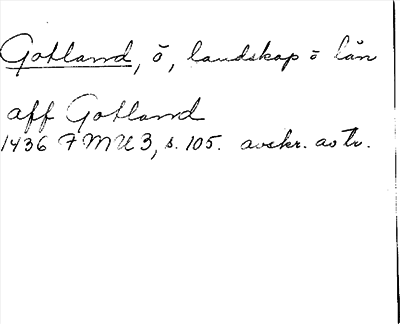 Gotland, ö, landskap o län
aff Gotland
1436 FMU 3, s. 105. avskr. av tr.